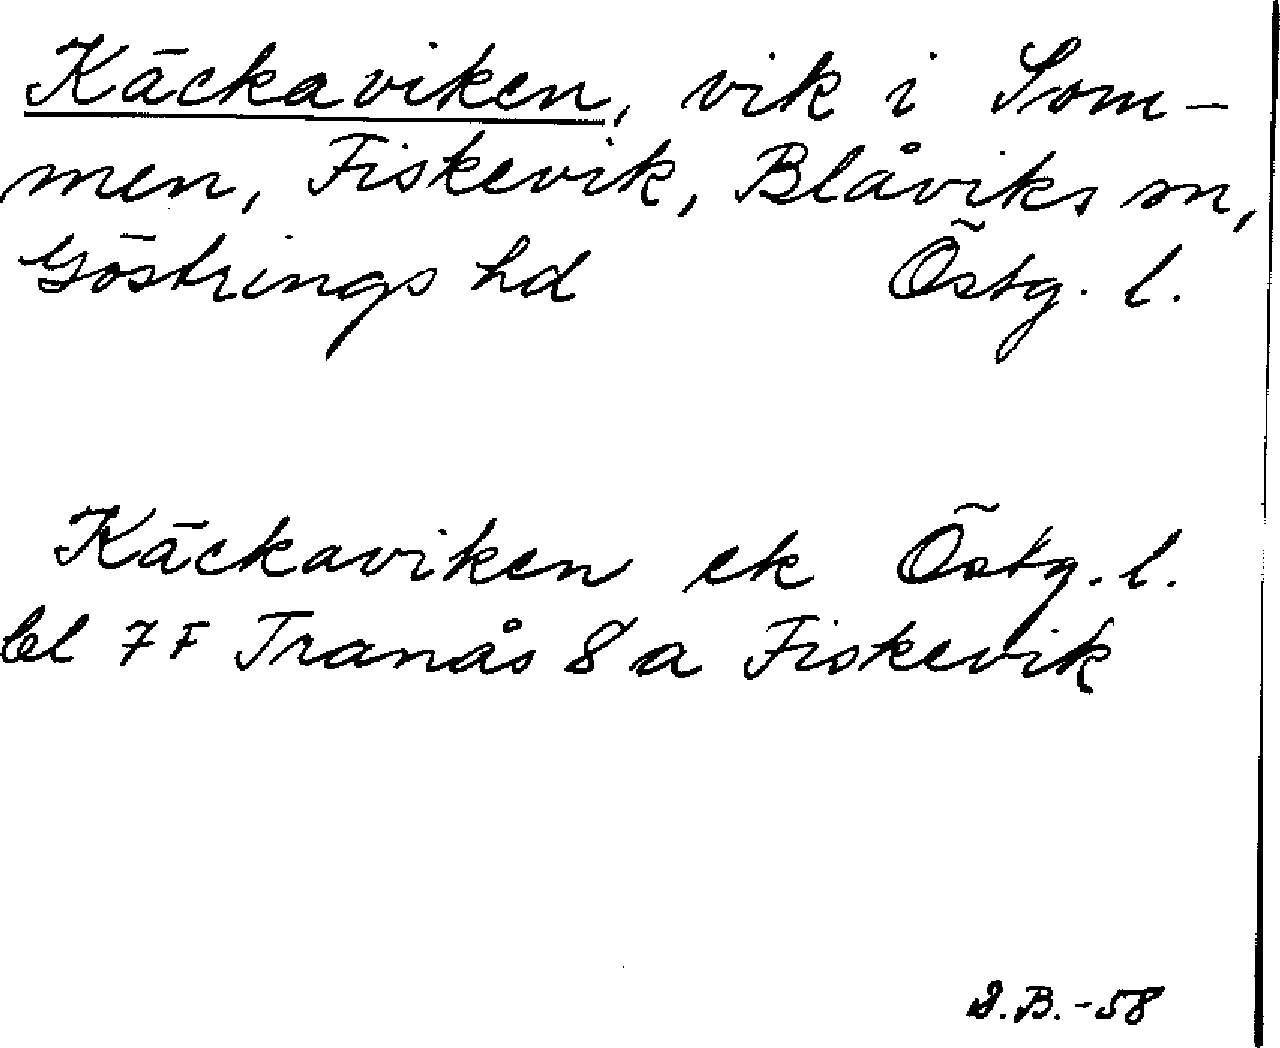 Käckaviken, vik i Som-
men, Fiskevik, Blåviks sn,
Göstrings hd Östg. l.
Käckaviken ek Östg. l.
bl 7F Tranås 8 a Fiskevik
B.-58